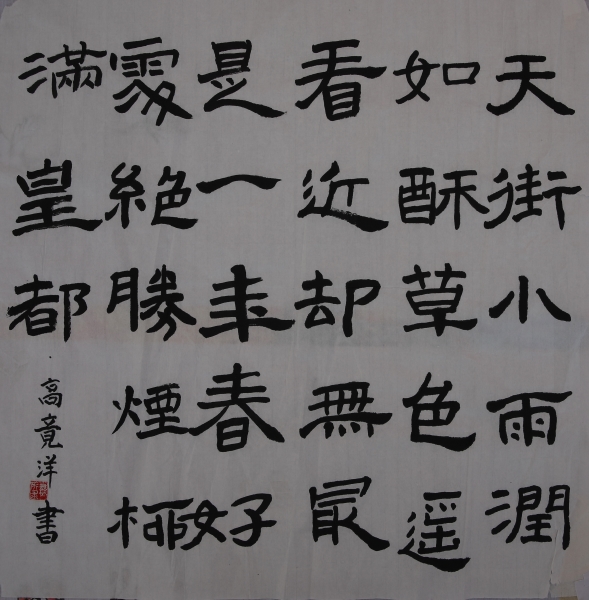 天街小雨潤
如酥草色遥
看近却無最
是一年春好
處絶勝煙柳
滿皇都
高竟洋書